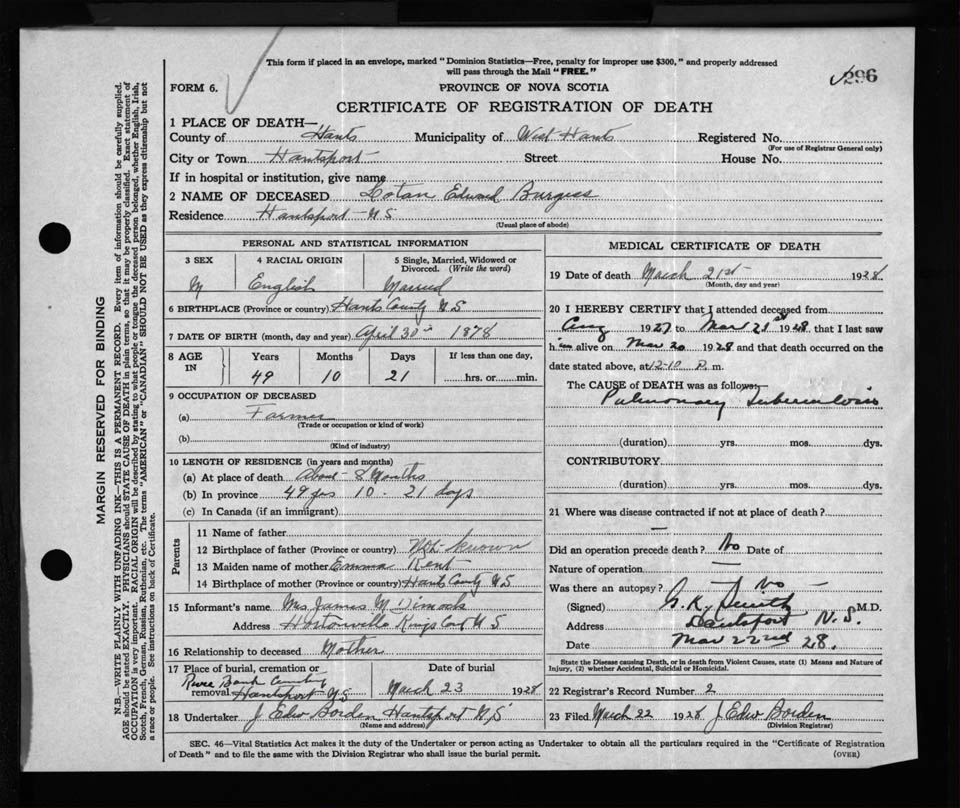 This form if placed in an envelope, marked “Dominion Statistics—Free, penalty for improper use $300,” and properly addressed
will pass through the Mail “FREE.”
296
FORM 6.
PROVINCE OF NOVA SCOTIA
CERTIFICATE OF REGISTRATION OF DEATH
1 PLACE OF DEATH—
County of Hants Municipality of West Hants Registered No.
(For use of Registrar General only)
City or Town Hantsport Street House No.
If in hospital or institution, give name
2 NAME OF DECEASED Edward Burgess
Residence Hantsport N.S
(Usual place of abode)
PERSONAL AND STATISTICAL INFORMATION
3 SEX 4 RACIAL ORIGIN 5 Single, Married, Widowed or Divorced. (Write the word)
M English Married
6 BIRTHPLACE (Province or country) Hants County N S
7 DATE OF BIRTH (month, day and year) April 30th 1878
8 AGE IN Years Months Days If less than one day,
49 10 21 hrs. or min.
9 OCCUPATION OF DECEASED
(a) Farmer
(Trade or occupation or kind of work)
(b)
(Kind of industry)
10 LENGTH OF RESIDENCE (in years and months)
(a) At place of death about 8 Months
(b) In province 49 yrs 10 - 21 days
(c) In Canada (if an immigrant)
Parents
11 Name of father
12 Birthplace of father (Province or country) Not known
13 Maiden name of mother Emma Kent
14 Birthplace of mother (Province or country) Hants County N S
15 Informant's name Mrs James M Dimock
Address Hortonville Kings Co N S
16 Relationship to deceased Mother
17 Place of burial, cremation or removal River Bank Hantsport N S
Date of burial March 23 1928
18 Undertaker J Edw Borden Hantsport N S
(Name and address)
MEDICAL CERTIFICATE OF DEATH
19 Date of death March 21st 1928
(Month, day and year)
20 I HEREBY CERTIFY that I attended deceased from
Aug 1927 to Mar 21st 1928 that I last saw
him alive on Mar 20 1928 and that death occurred on the
date stated above, at 12-10 P. m.
The CAUSE of DEATH was as follows:—
Pulmonary Tuberculosis
(duration) yrs. mos. dys.
CONTRIBUTORY
(duration) yrs. mos. dys.
21 Where was disease contracted if not at place of death?
—
Did an operation precede death? No Date of
Nature of operation —
Was there an autopsy? No —
(Signed) Smith M.D.
Address Hantsport N.S.
Date Mar 22nd 28.
State the Disease causing Death, or in death from Violent Causes, state (1) Means and Nature of
Injury, (2) whether Accidental, Suicidal or Homicidal.
22 Registrar's Record Number 2
23 Filed March 22 1928 J Edw Borden
(Division Registrar)
SEC. 46—Vital Statistics Act makes it the duty of the Undertaker or person acting as Undertaker to obtain all the particulars required in the “Certificate of Registration
of Death” and to file the same with the Division Registrar who shall issue the burial permit.
(OVER)
MARGIN RESERVED FOR BINDING
N.B.—WRITE PLAINLY WITH UNFADING INK—THIS IS A PERMANENT RECORD. Every item of information should be carefully supplied.
AGE should be stated EXACTLY. PHYSICIANS should STATE CAUSE OF DEATH in plain terms, so that it may be properly classified. Exact statement of
OCCUPATION is very important. RACIAL ORIGIN will be described by stating to what people or tongue the deceased person belonged, whether English, Irish,
Scotch, French, German, Russian, Ruthenian, etc. The terms “AMERICAN” or “CANADIAN” SHOULD NOT BE USED as they express citizenship but not
a race or people. See instructions on back of Certificate.